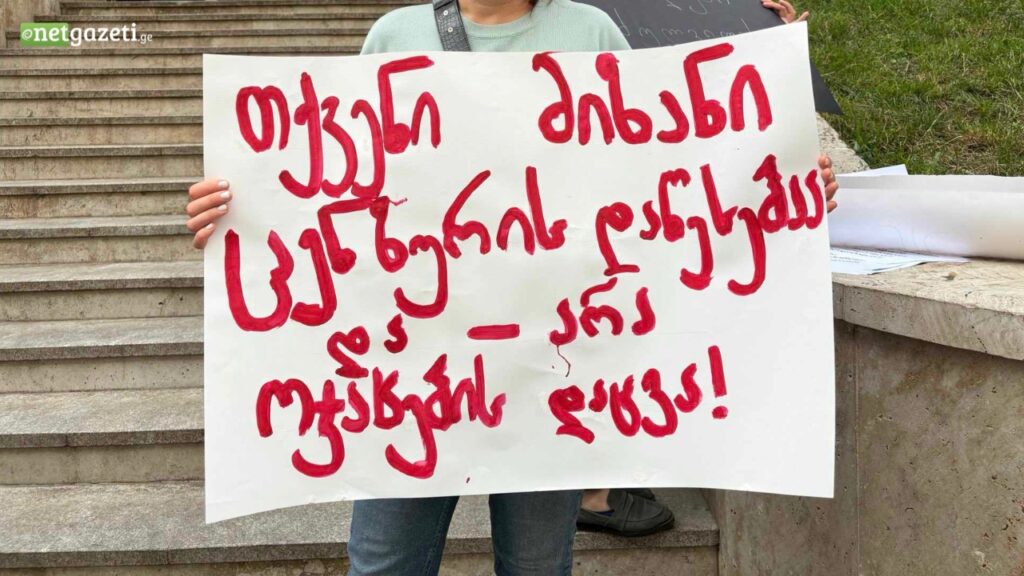 netgazeti.ge
თქვენი მიზანი
ცენზურის დაწესებაა
და — არა
ოჯახების დაცვა!